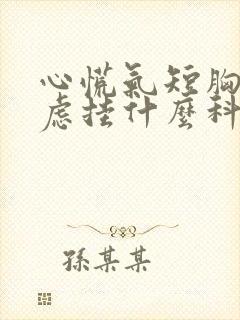 心慌氣短胸
慮挂什麼科
孫某某